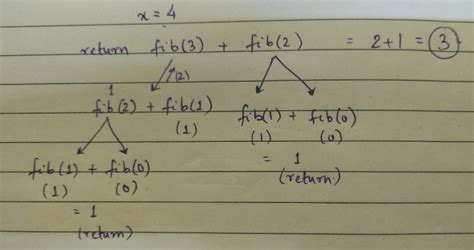 x = 4
return fib(3) + fib(2) = 2+1 = 3
(2)
1
fib(2) + fib(1) fib(1) + fib(0)
(1) (1) (0)
fib(1) + fib(0) = 1
(1) (0) (return)
= 1
(return)